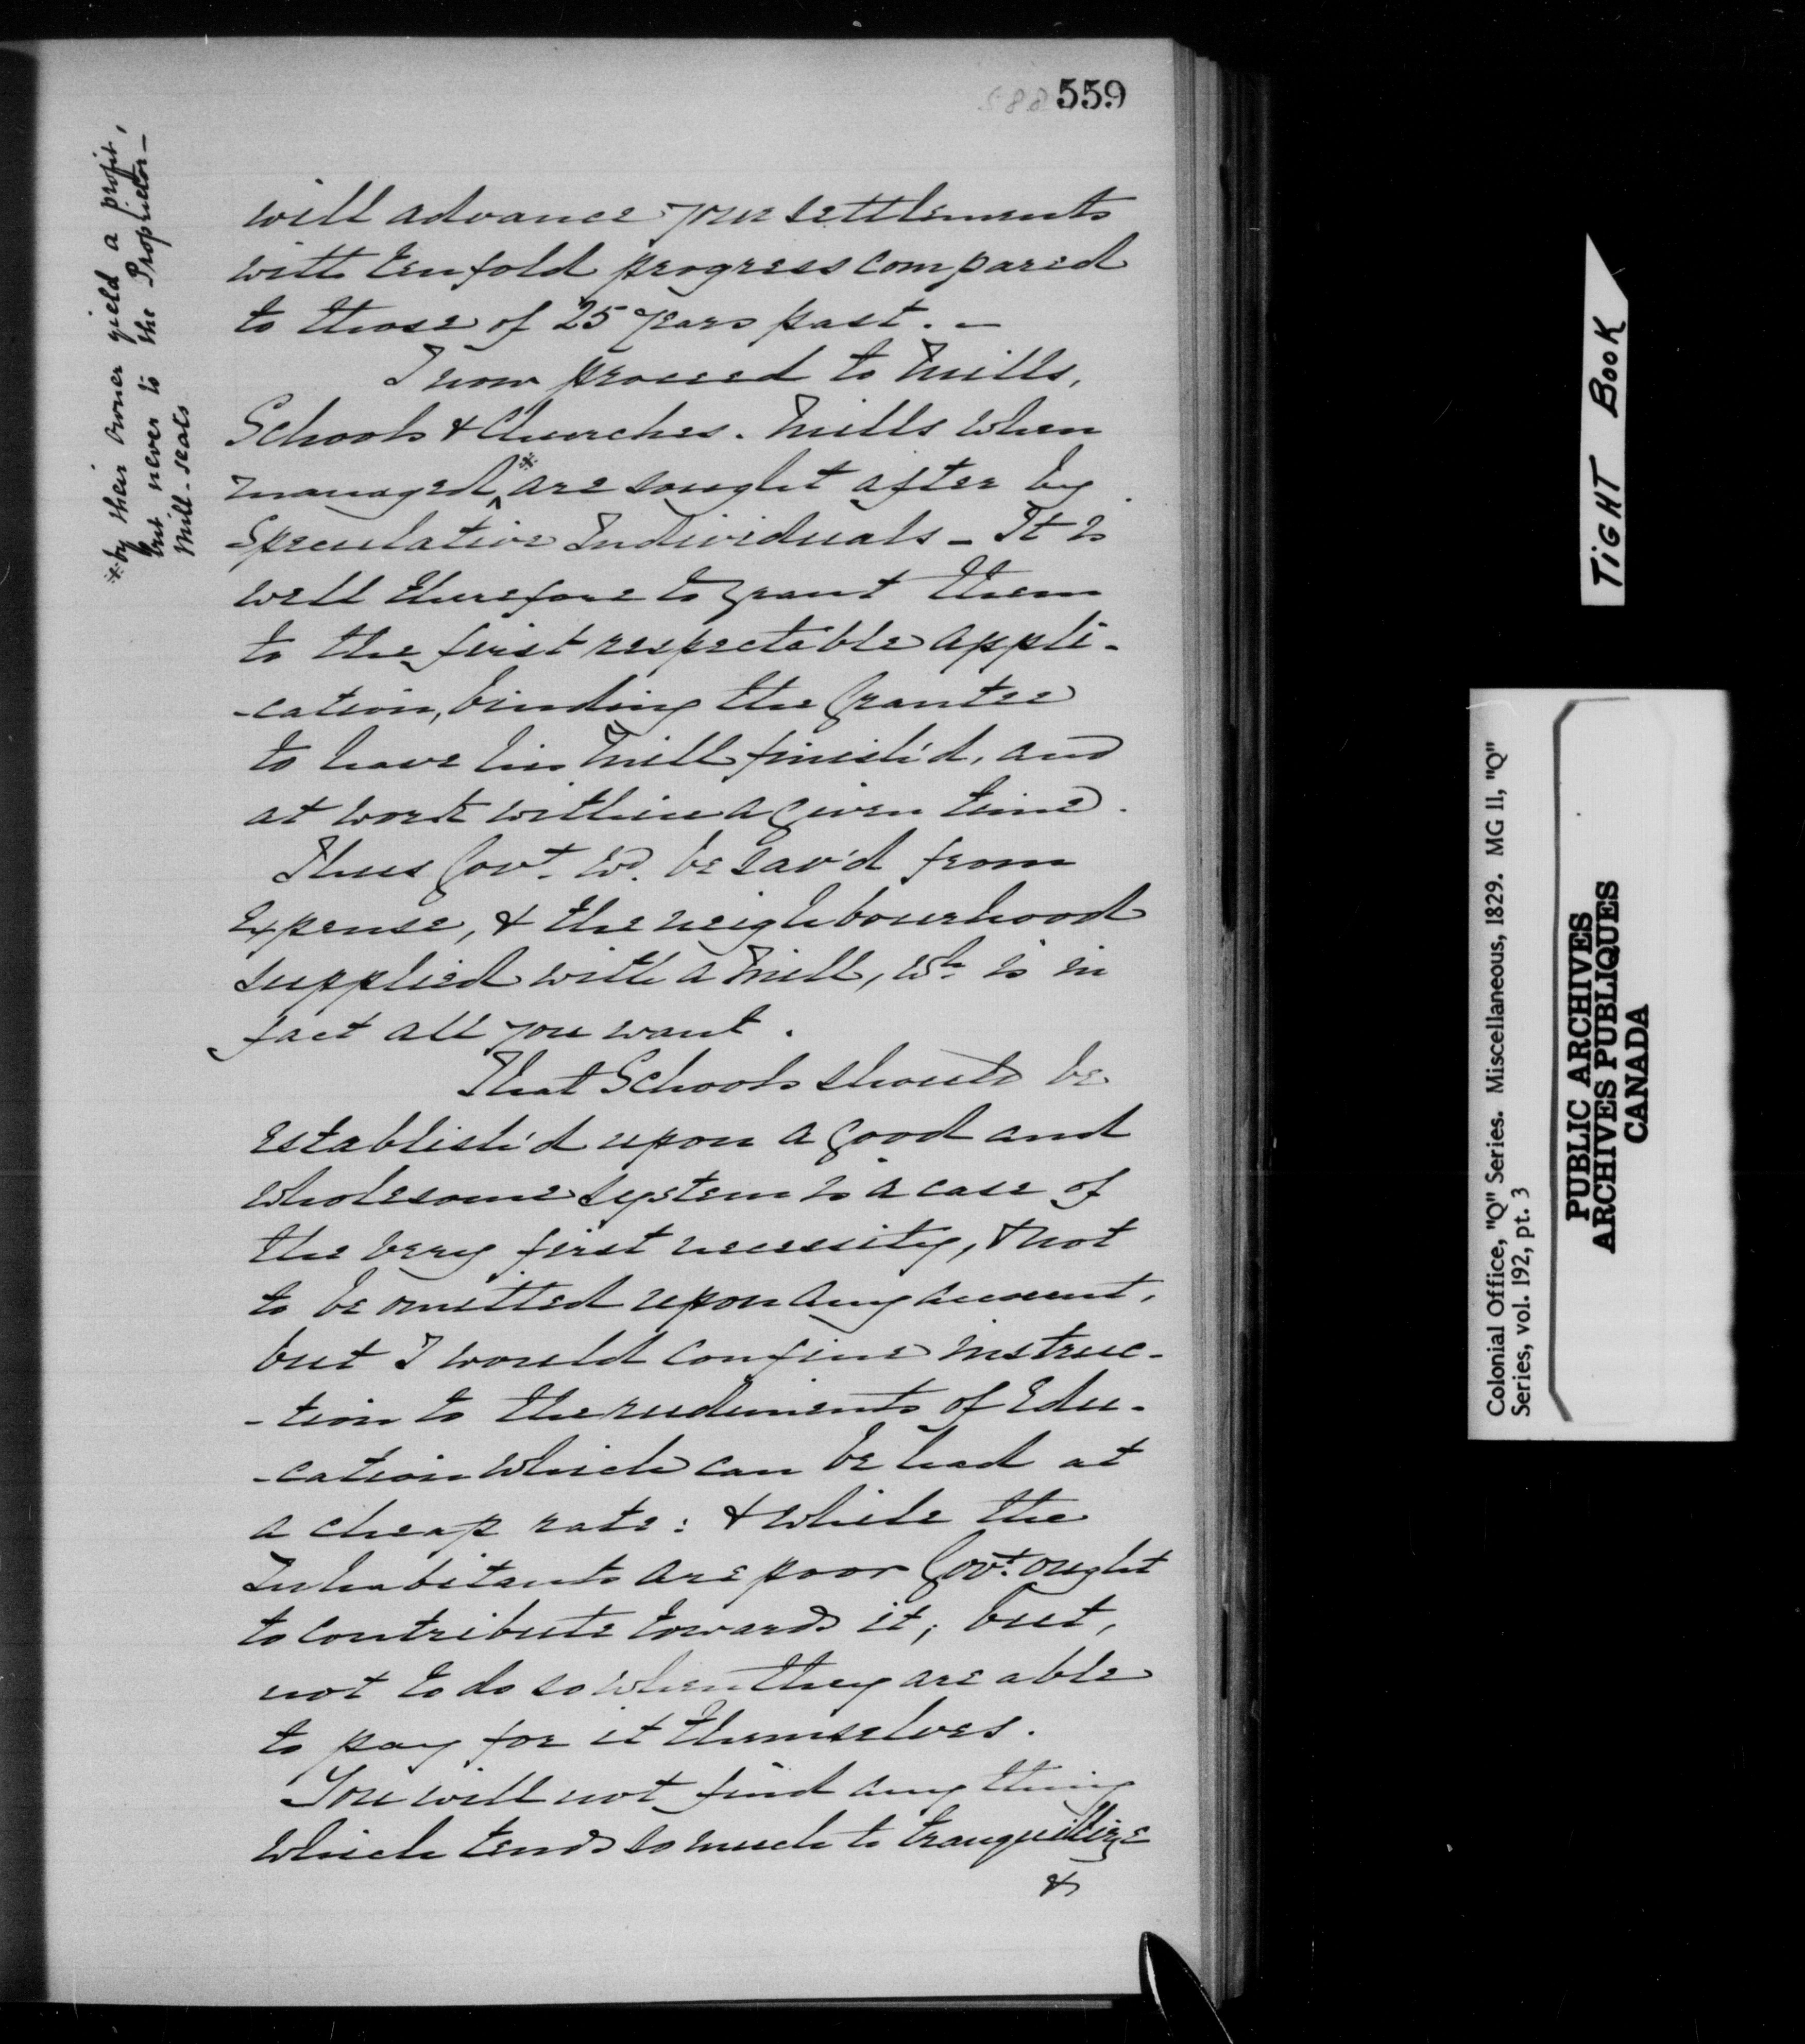 588 559
will advance your settlements
with tenfold progress compared
to those of 25 years past. —
I now proceed to Mills,
Schools & Churches. Mills when
managed ^* are sought after by
Speculative Individuals - It is
well therefore to grant them
to the first respectable appli-
-cation, binding the Grantee
to have his Mill finish'd, and
at work within a given time.
Thus Govt. wd. be sav'd from
Expense, & the neighbourhood
supplied with a Mill, wh. is in
fact all you want.
That Schools should be
establish'd upon a good and
wholesome system is a case of
the very first necessity, & not
to be omitted upon any account,
but I would confine instruc-
-tion to the rudiments of Edu-
-cation which can be had at
a cheap rate: & while the
Inhabitants are poor Govt. ought
to contribute towards it; but,
not to do so when they are able
to pay for it themselves.
You will not find any thing
which tends so much to tranquillize
&
* by their owner yield a profit,
but never to the Proprietor—
Mill-seats
TIGHT BOOK
Colonial Office, "Q" Series. Miscellaneous, 1829. MG 11, "Q"
Series, vol. 192, pt. 3
PUBLIC ARCHIVES
ARCHIVES PUBLIQUES
CANADA